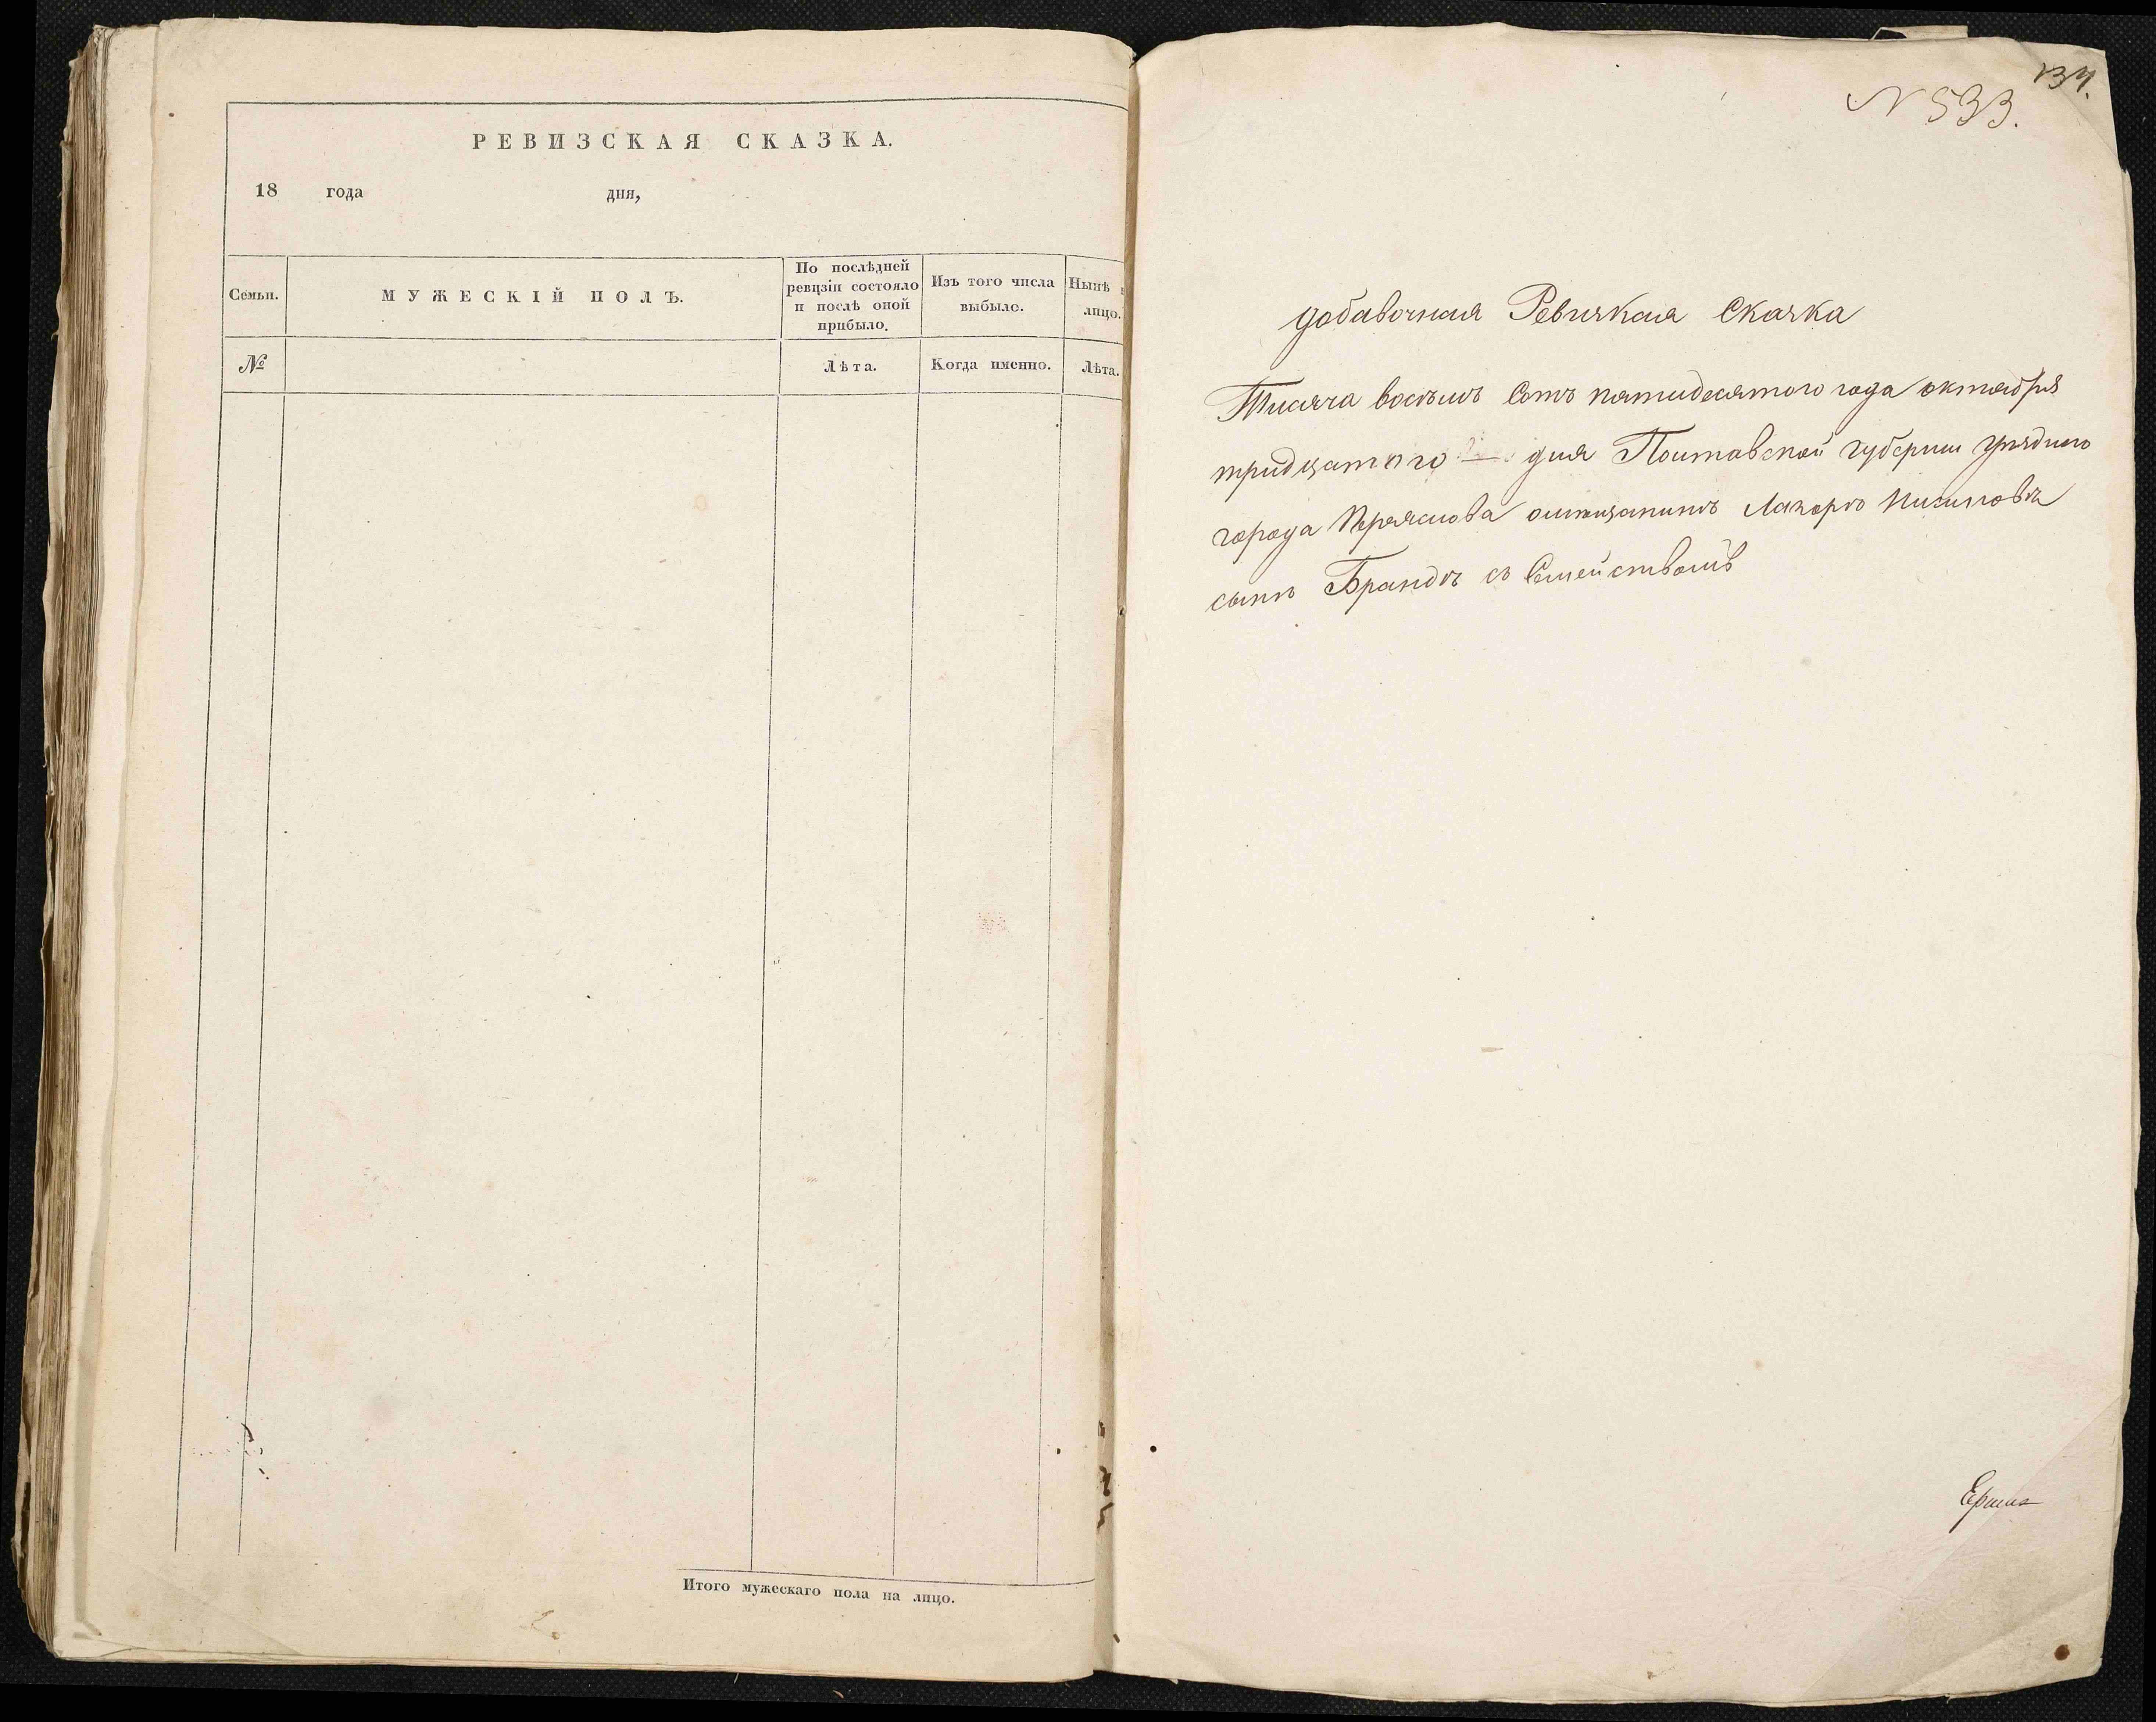 РЕВИЗСКАЯ СКАЗКА.
18 года дня,
Семьи.
МУЖЕСКІЙ ПОЛЪ.
По послѣдней
ревизіи состояло
и послѣ оной
прибыло.
Изъ того числа
выбыло.
Нынѣ
лицо.
№
Лѣта.
Когда именно.
Лѣта.
Итого мужескаго пола на лицо.
134.
N 533.
добавочная Ревизкая Сказка
Тисяча восъмъ Сотъ пятидесятого года октября
тридцатого — дня Полтавской губернии уѣздного
города
сынъ Брандъ съ Семействомъ